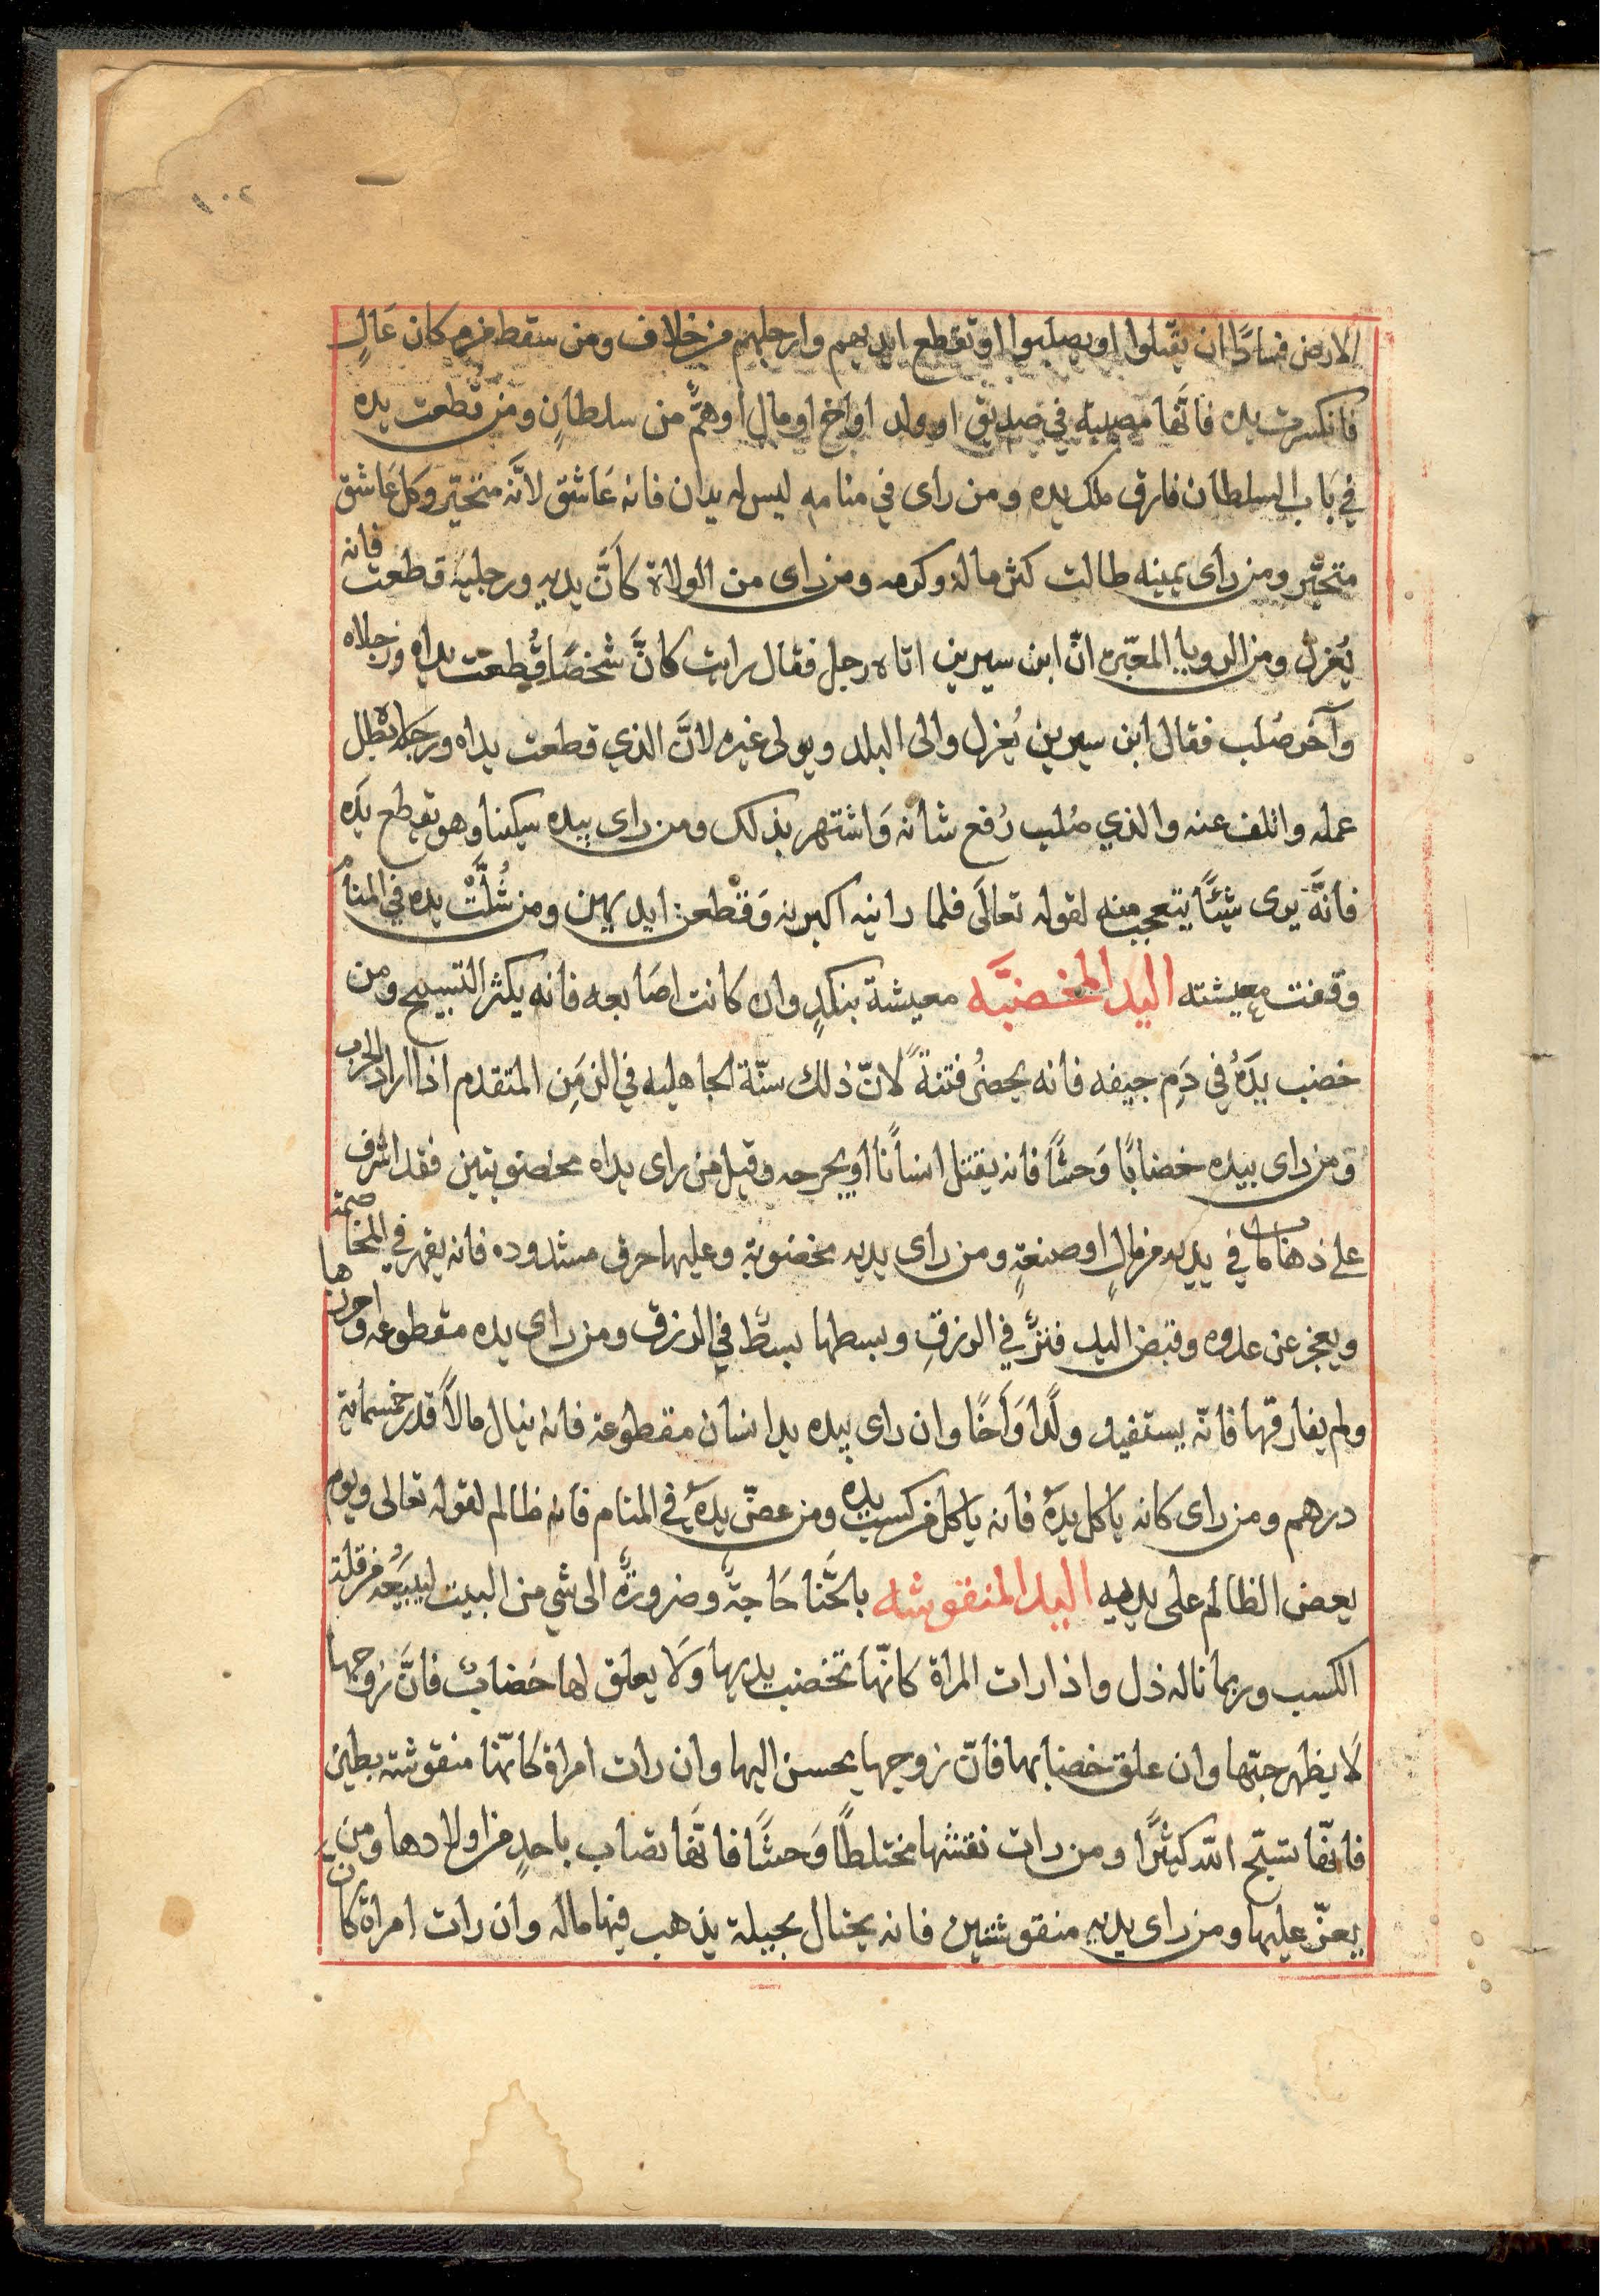 الارض فسادًا ان يقتلوا او يصلبوا او تقطع ايديهم وارجلهم من خلاف ومن سقط من مكان عَالٍ
فانكسرت يده فانّها مصيبة في صديق او ولد او اخ او مال او همٌّ من سلطانٍ ومن قُطعت يده
في بَاب السلطان فارق ملك يده ومن راى في منامه ليس له يدان فانه عَاشق لانَّه متحيّر وكل عَاشق
متحيّر ومن راى يمينه طالت كثر ماله وكرمه ومن راى من الولاة كانَّ يديه ورجليه قطعت فانه
يُعزل ومن الرويا المعبّرة انّ ابن سيرين اتاه رجل فقال رايت كانَّ شخصًا قُطعت يداه ورجلاه
وآخر صُلب فقال ابن سيرين يُعزل والى البلد ويولى غيره لانَّ الذي قطعت يداه ورجلاه بطل
عمله واتلف عنه والذي صُلب رُفع شانه وَاشتهر بذلك ومن راى بيده سكينا وهو يقطع يَده
فانَّه يرى شيئًا يتعجب منه لقوله تعالَى فلما راينه اكبرنه وَقطعن ايديهن ومن شُلَّتْ يده في المنام
وقفت معيشته اليد المخضبَّه معيشة بنكدٍ وان كَانت اصَابعه فانه يكثر التسبيح ومن
خضب يدَهُ في دَمِ جيفه فانه يحضُر فتنةً لانّ ذلك سنّة الجاهليه في الزمَنِ المتقدم اذا اراد الحرب
ومن راى بيده خضابًا وَحشًا فانه يقتل انسانًا او يجرحه وقيل من راى يداه مخضوبتين فقد اشرف
على ذهاب ما في يديه من مالٍ او صنعةٍ ومن راى يديه مخضوبة وعليها خرق مشدوده فانه يقهر في المخاصمة
ويعجز عن عدوه وقبض اليد فتنٌ في الرزقِ وبسطها بسطٌ في الرزق ومن راى يده مقطوعه واحرزها
ولم يفارقها فانّه يستفيد ولَدًا وَاَخًا وان راى بيده يد انسان مقطوعة فانه ينال مالًا قدر خمسماية
درهم ومن راى كانه ياكل يدَهُ فانه ياكل من كسب يده ومن عضّ يدَهُ في المنام فانه ظالم لقوله تعالى ويوم
يعض الظالم على يديه اليد المنقوشه بالحنَّا حَاجةٌ وضرورةٌ الى شي من البيت ليبيعُه من قلة
الكسب وربما ناله ذل واذا رات المراة كانّها تخضب يديها وَلا يعلق لها خضابٌ فانَّ زوجها
لَا يظهر حبّها وان علق خضابها فانّ زوجها يحسن اليها وان رات امراة كانّها منقوشة بطين
فانّها تسبّح الله كثيرًا ومن رات نقشها مختلطًا وَحشًا فانَّها تصاب باحدٍ من اولادها ومن
يعزّ عليها ومن راى يديه منقوشتين فانه يحتال بحيلة يذهب فيها ماله وان رات امراة كان